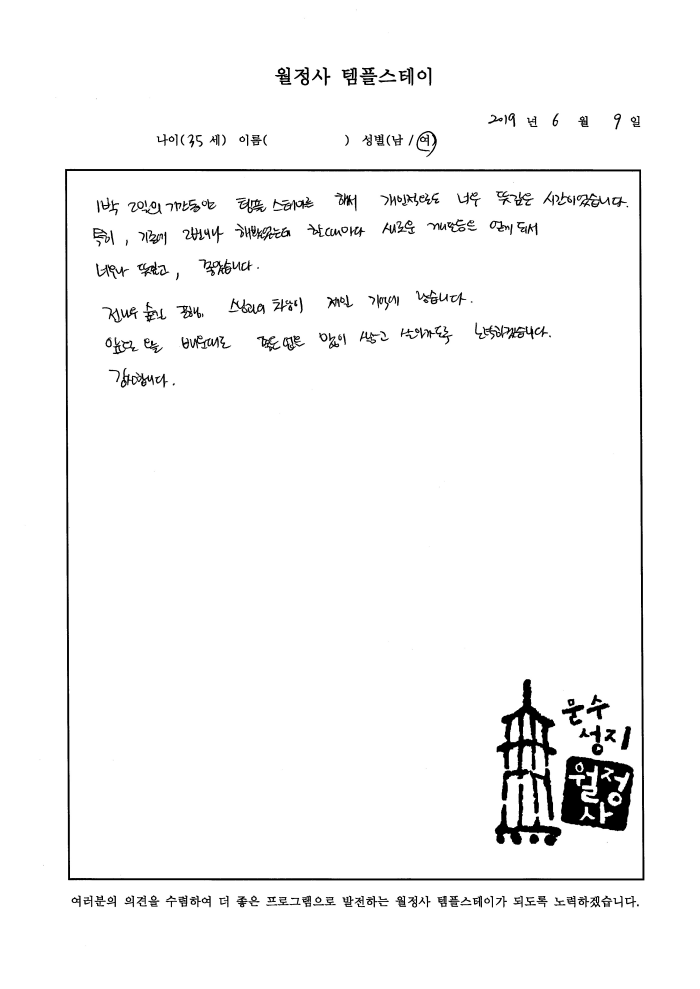 월정사 템플스테이
2019 년 6 월 9 일
나이(35 세) 이름( ) 성별(남 / 여)
1박 2일의 기간동안 템플 스테이를 해서 개인적으로 너무 뜻깊은 시간이었습니다.
특히, 기존에 2번이나 해봤었는데 할때마다 새로운 깨달음을 얻게 되서
너무나 뜻깊고, 좋았습니다.
전나무 숲길 포행, 스님과의 차담이 제일 기억에 남습니다.
앞으로 오늘 배운대로 좋은 업을 많이 쌓고 살아가도록 노력하겠습니다.
감사합니다.
문수
성지
월정
사
여러분의 의견을 수렴하여 더 좋은 프로그램으로 발전하는 월정사 템플스테이가 되도록 노력하겠습니다.